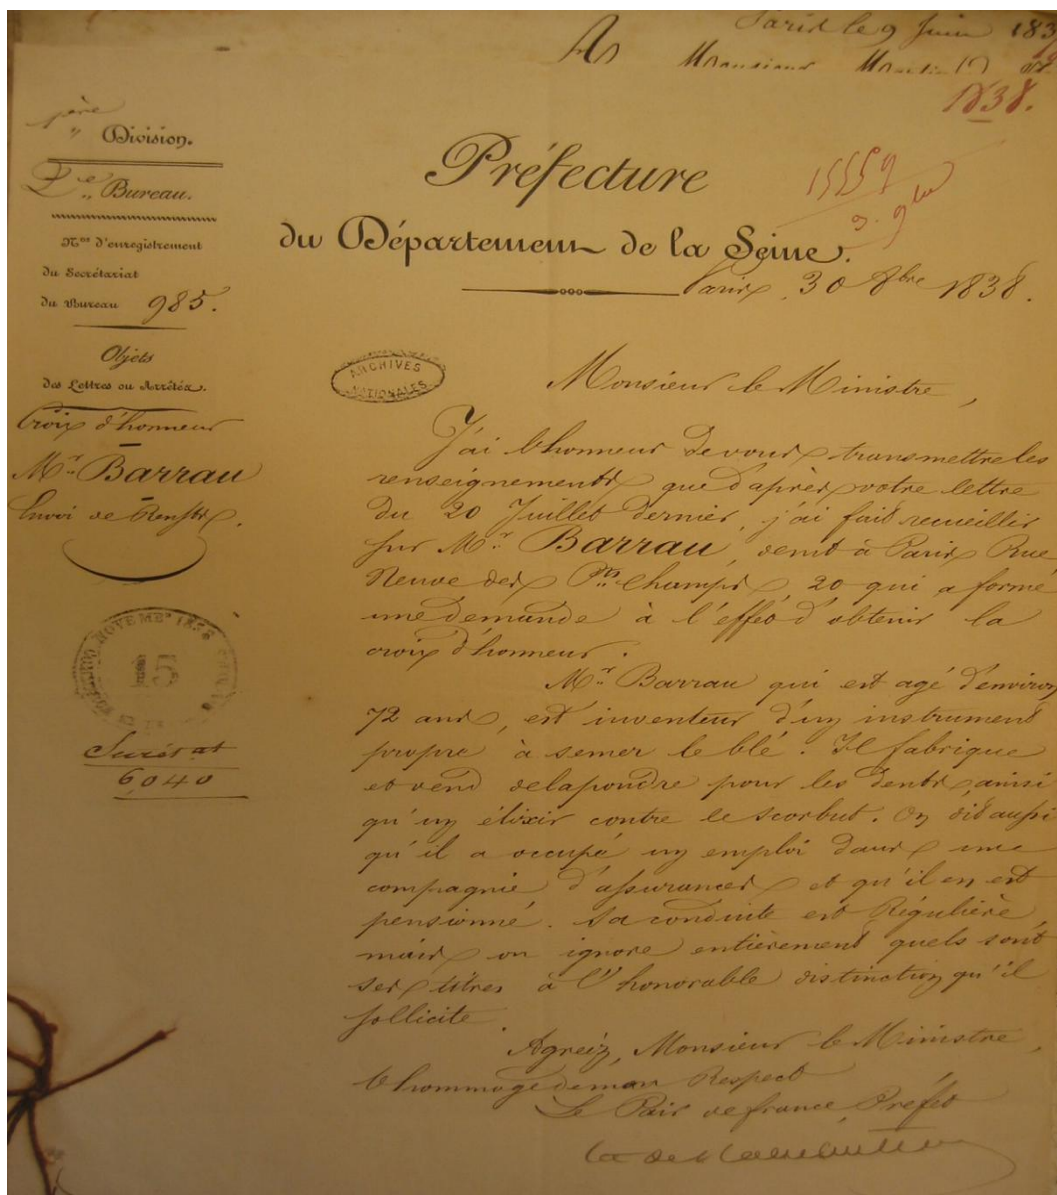 Paris le 9 Juin 183
Monsieur
1838.
1ère Division.
2e Bureau.
Nos d'enregistrement
du Secrétariat
du Bureau 985.
Objets
des Lettres ou Arrêtés.
Croix d'honneur
Mr. Barrau
Envoi de Rensts.
6040
Préfecture
du Département de la Seine.
15559
Paris, 30 8bre 1838.
ARCHIVES
NATIONALES
Monsieur le Ministre,
J'ai l'honneur de vous transmettre les
renseignements que d'après votre lettre
du 20 Juillet dernier, j'ai fait recueillir
sur Mr. Barrau, demt à Paris Rue
Neuve des Pts Champs, 20 qui a formé
une demande à l'effet d'obtenir la
croix d'honneur.
Mr. Barrau qui est agé d'environ
72 ans, est inventeur d'un instrument
propre à semer le blé. Il fabrique
et vend de la poudre pour les dents, ainsi
qu'un élixir contre le scorbut. On dit aussi
qu'il a occupé un emploi dans une
compagnie d'assurances et qu'il en est
pensionné. Sa conduite est Régulière,
mais on ignore entièrement quels sont
ses titres à l'honorable distinction qu'il
sollicite.
Agréez, Monsieur le Ministre,
l'hommage de mon Respect
Le Pair de france, Préfet